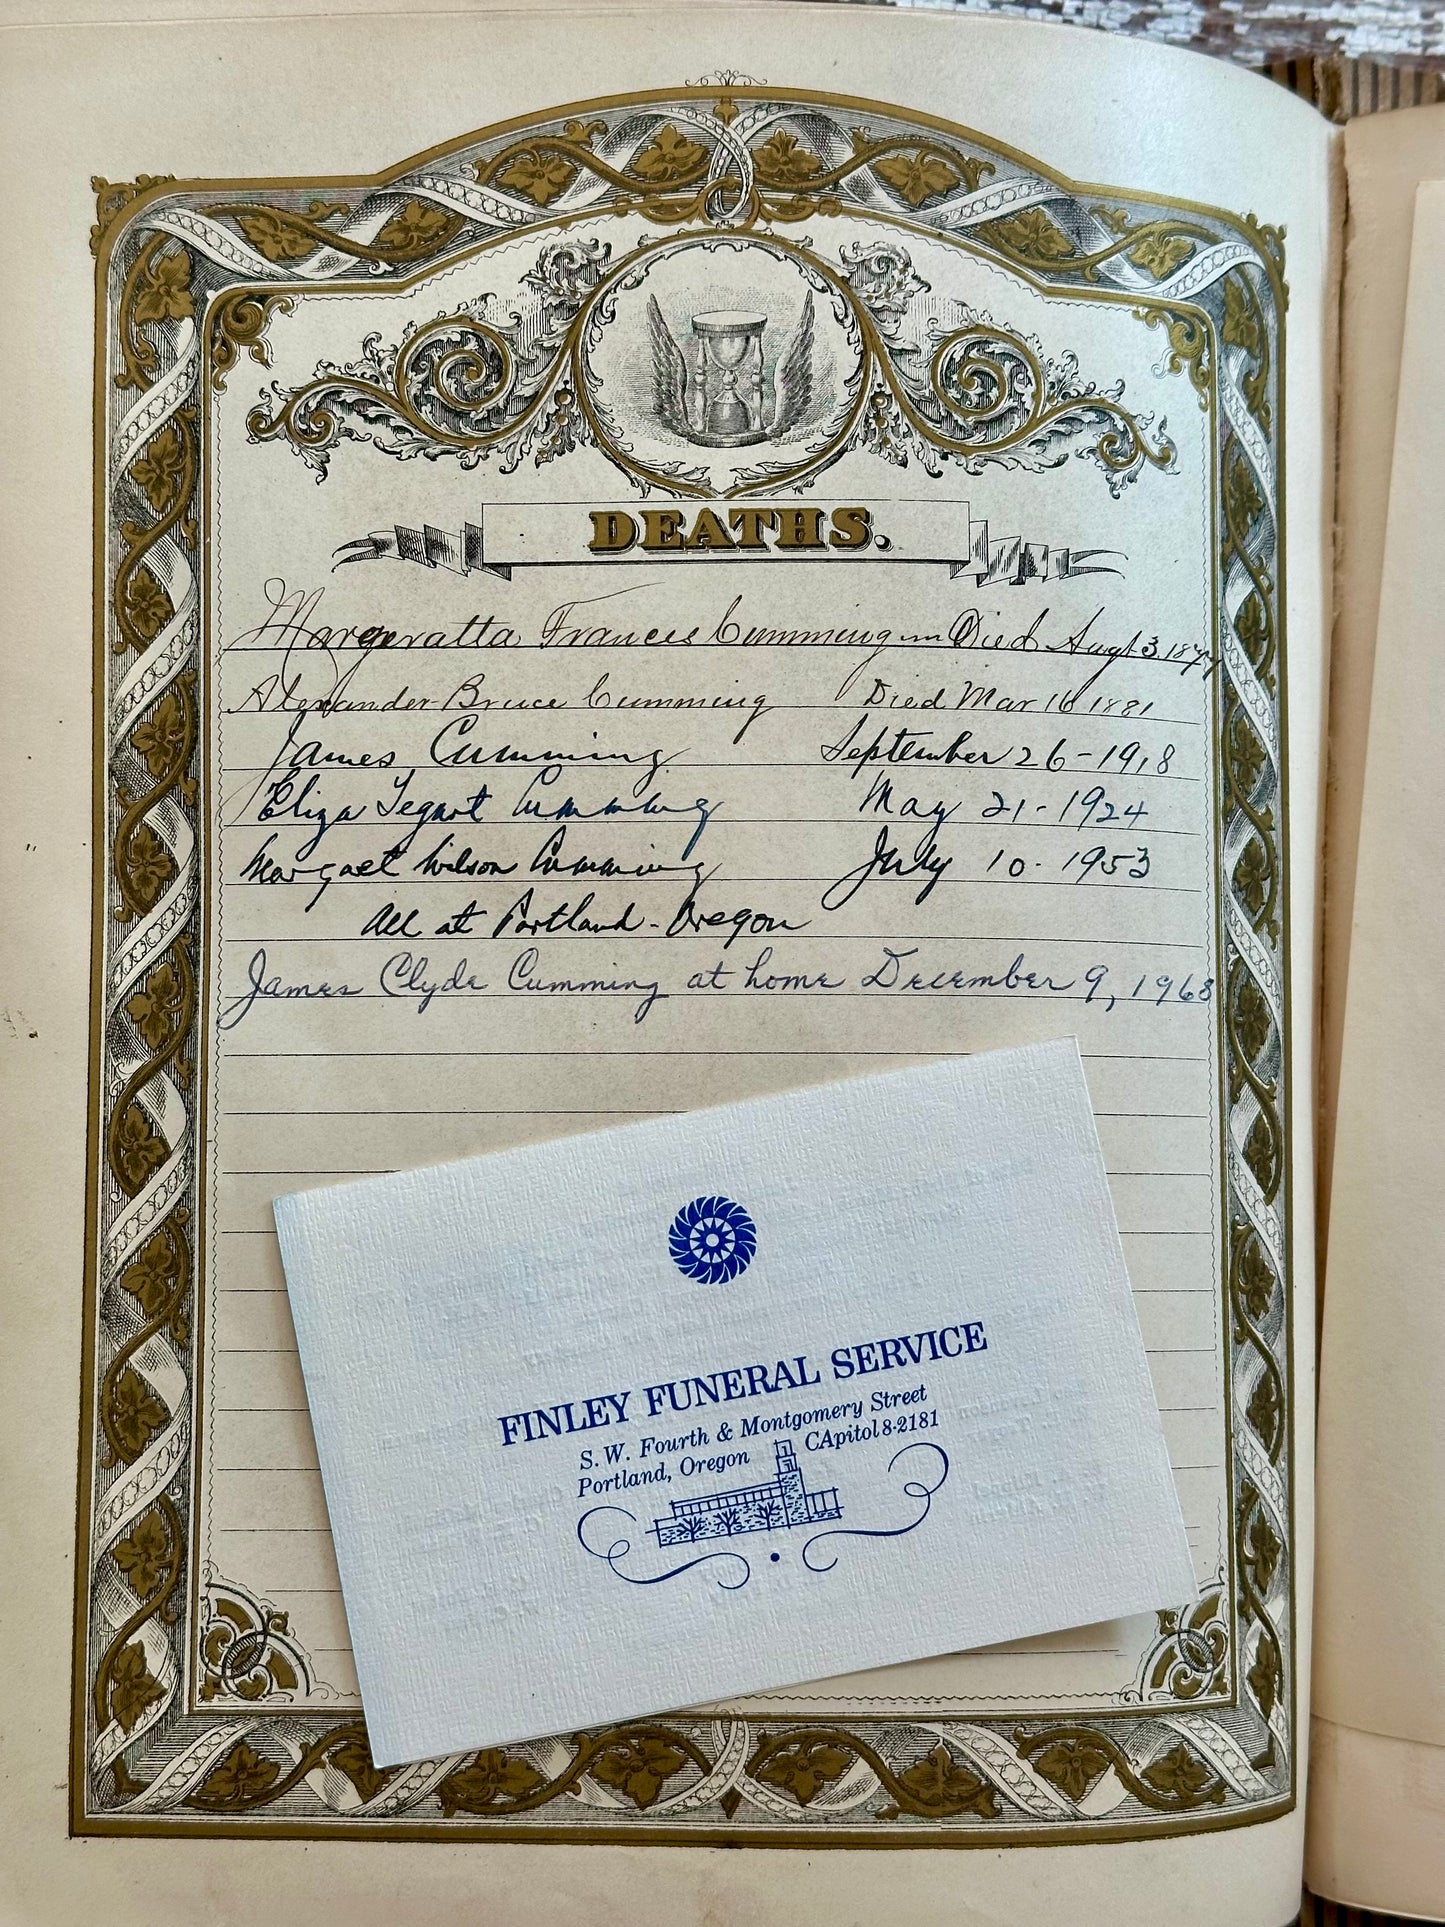 DEATHS.
Margeratta Frances Cumming Died Augt 3. 1877
Alexander Bruce Cumming Died Mar 16 1881
James Cumming September 26-1918
Eliza Tegart Cumming May 21-1924
Margaet Wilson Cumming July 10-1953
All at Portland-Oregon
James Clyde Cumming at home December 9, 1968
FINLEY FUNERAL SERVICE
S. W. Fourth & Montgomery Street
Portland, Oregon CApitol 8-2181